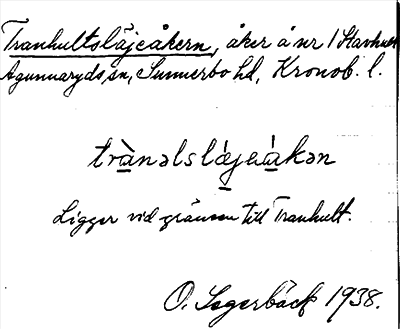 Tranhultslåjeåkern, åker å nr 1 Stavhult
Agunnaryds sn, Sunnerbo hd, Kronob. l.
trànəlslǻjeákən
Ligger vid gränsen till Tranhult.
O. Sagerbäck 1938.